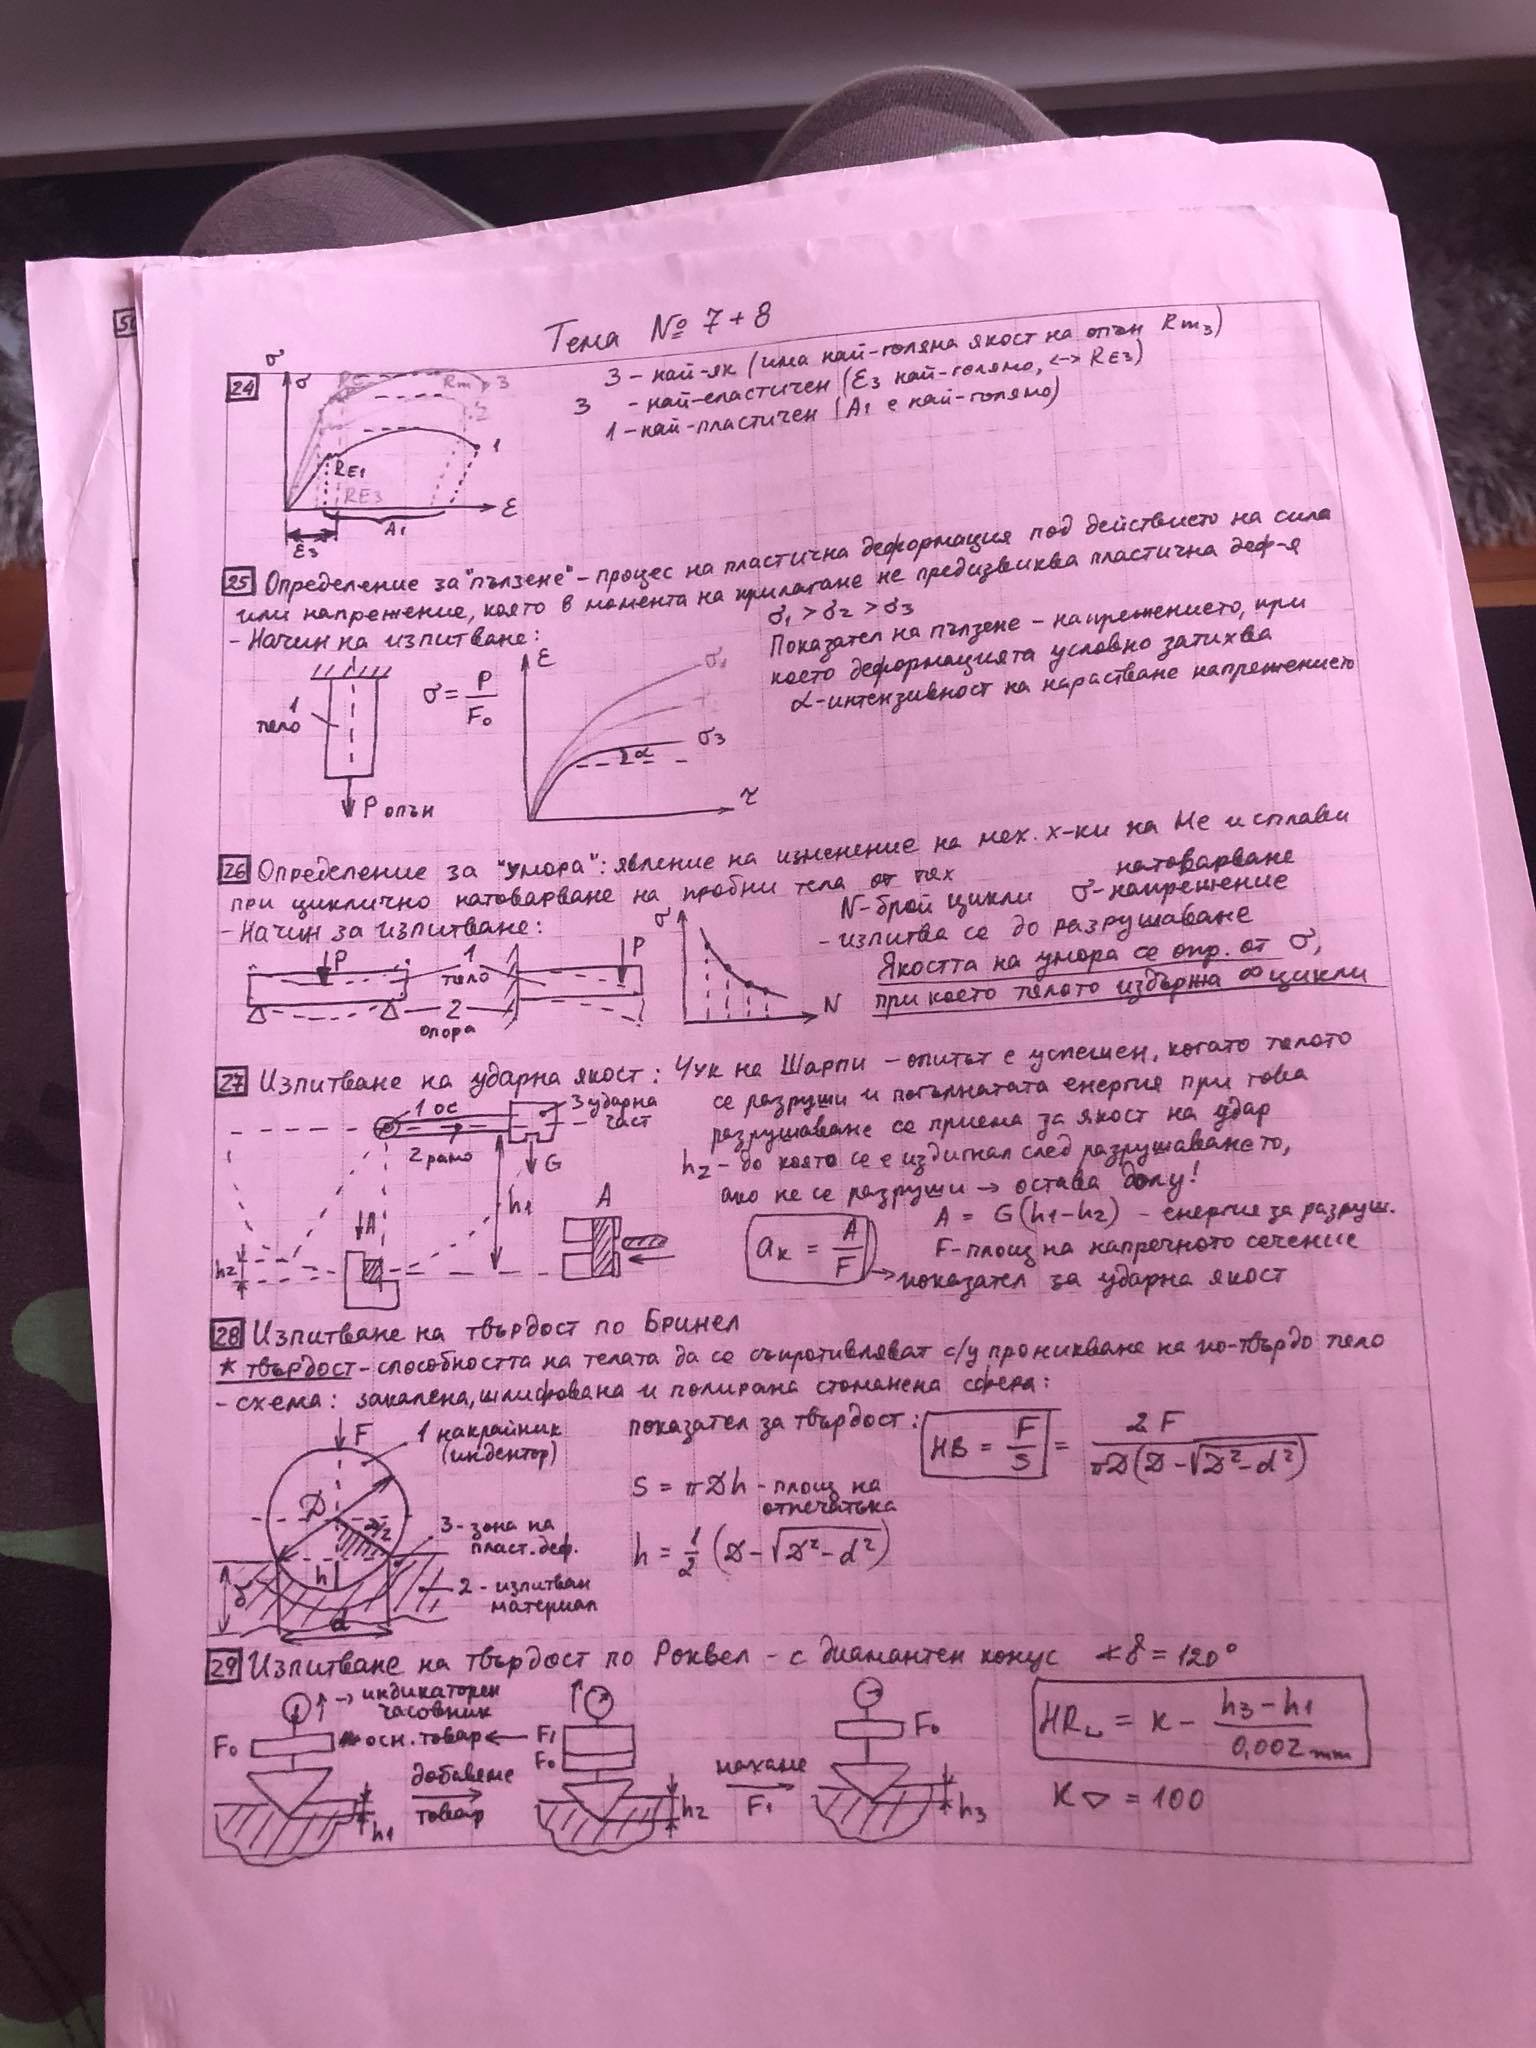 50
Тема № 7+8
24
σ
σ
Rm
3
2
1
RE1
RE3
ε
ε3
A1
3 – най-як (има най-голяма якост на опън Rm3)
3 – най-еластичен (ε3 най-голямо, <-> RE3)
1 – най-пластичен (A1 е най-голямо)
25 Определение за "пълзене" – процес на пластична деформация под действието на сила
или напрежение, която в момента на прилагане не предизвиква пластична деф-я
– Начин на изпитване:
σ1 > σ2 > σ3
Показател на пълзене – напрежението, при
което деформацията условно затихва
α – интензивност на нарастване напрежението
1
тело
P опън
σ = P/F0
ε
σ1
σ3
α
τ
26 Определение за "умора": явление на изменение на мех. х-ки на Ме и сплави
при циклично натоварване на пробни тела от тях
– Начин за изпитване:
N – брой цикли
натоварване
σ – напрежение
– изпитва се до разрушаване
Якостта на умора се опр. от σ,
при което тялото издържа ∞ цикли
P
1
тело
P
2
опора
σ
N
27 Изпитване на ударна якост: Чук на Шарпи – опитът е успешен, когато тялото
се разруши и погълнатата енергия при това
разрушаване се приема за якост на удар
h2 – до която се е издигнал след разрушаването,
ако не се разруши → остава долу!
A = G(h1 – h2) – енергия за разруш.
F – площ на напречното сечение
aк = A/F → показател за ударна якост
1 ос
2 рамо
3 ударна
част
G
h1
A
A
h2
28 Изпитване на твърдост по Бринел
* твърдост – способността на телата да се съпротивляват с/у проникване на по-твърдо тело
– схема: закалена, шлифована и полирана стоманена сфера:
F
1 накрайник
(индентор)
D
D/2
h
δ
d
3 – зона на
пласт. деф.
2 – изпитван
материал
показател за твърдост: HB = F/S = 2F/πD(D – √D² – d²)
S = πDh – площ на
отпечатъка
h = 1/2 (D – √D² – d²)
29 Изпитване на твърдост по Роквел – с диамантен конус ∢δ = 120°
→ индикаторен
часовник
F0
осн. товар ← F1
F0
F0
h1
добавяне
товар
h2
махане
F1
h3
HR = к – h3 – h1/0,002 mm
K▽ = 100